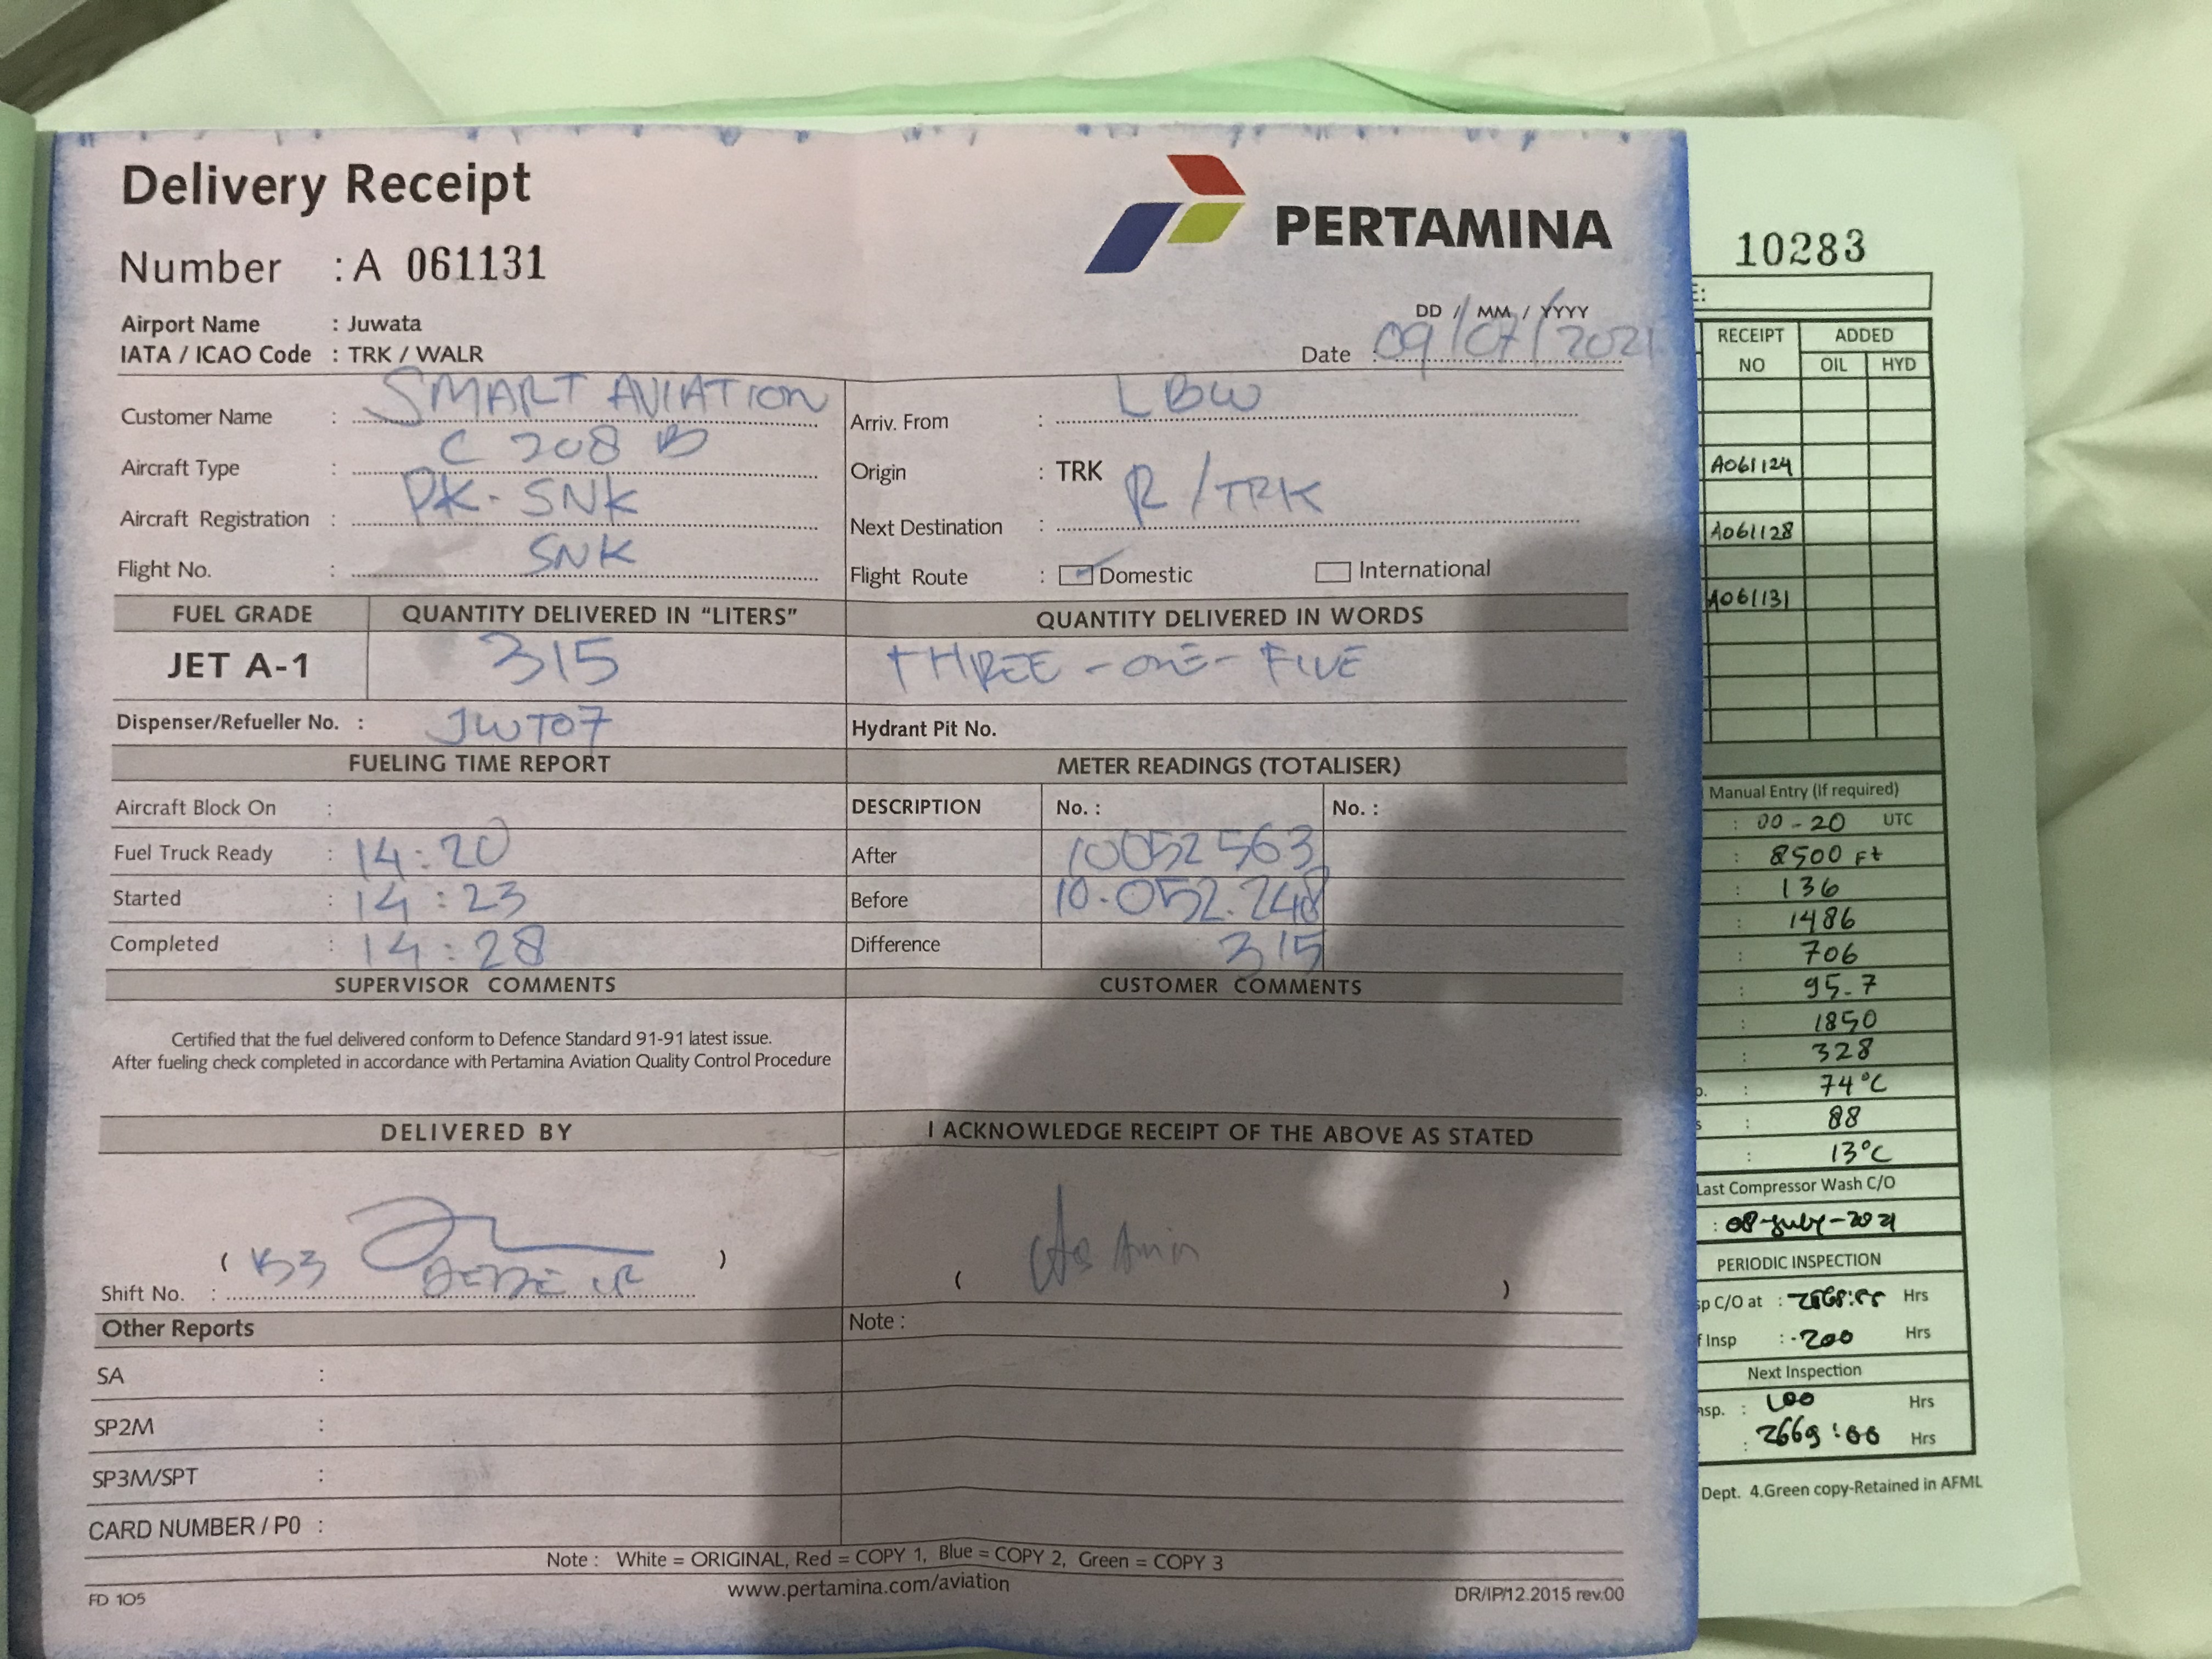 Delivery Receipt
PERTAMINA
Number : A 061131
Airport Name : Juwata
IATA / ICAO Code : TRK / WALR
DD / MM / YYYY
Date : 09/07/2021
Customer Name : SMART AVIATION
Arriv. From : LBW
Aircraft Type : C 208 B
Origin : TRK
Aircraft Registration : PK-SNK
Next Destination : R/TRK
Flight No. : SNK
Flight Route : Domestic International
FUEL GRADE QUANTITY DELIVERED IN "LITERS" QUANTITY DELIVERED IN WORDS
JET A-1 315 THREE - ONE - FIVE
Dispenser/Refueller No. : JWT07 Hydrant Pit No.
FUELING TIME REPORT METER READINGS (TOTALISER)
Aircraft Block On : DESCRIPTION No. : No. :
Fuel Truck Ready : 14:20 After 10052563
Started : 14:23 Before 10.052.248
Completed : 14:28 Difference 315
SUPERVISOR COMMENTS CUSTOMER COMMENTS
Certified that the fuel delivered conform to Defence Standard 91-91 latest issue.
After fueling check completed in accordance with Pertamina Aviation Quality Control Procedure
DELIVERED BY I ACKNOWLEDGE RECEIPT OF THE ABOVE AS STATED
( )
Shift No. :
( )
Other Reports Note :
SA :
SP2M :
SP3M/SPT :
CARD NUMBER / P0 :
Note : White = ORIGINAL, Red = COPY 1, Blue = COPY 2, Green = COPY 3
www.pertamina.com/aviation
FD 105 DR/IP/12.2015 rev.00
10283
RECEIPT NO ADDED
OIL HYD
A061124
A061128
A061131
Manual Entry (If required)
: 00-20 UTC
: 8500 Ft
: 136
: 1486
: 706
: 95.7
: 1850
: 328
: 74°C
: 88
: 13°C
Last Compressor Wash C/O
: 08-July-2021
PERIODIC INSPECTION
C/O at : Hrs
Insp : 200 Hrs
Next Inspection
: 100 Hrs
: 2669:00 Hrs
Dept. 4.Green copy-Retained in AFML